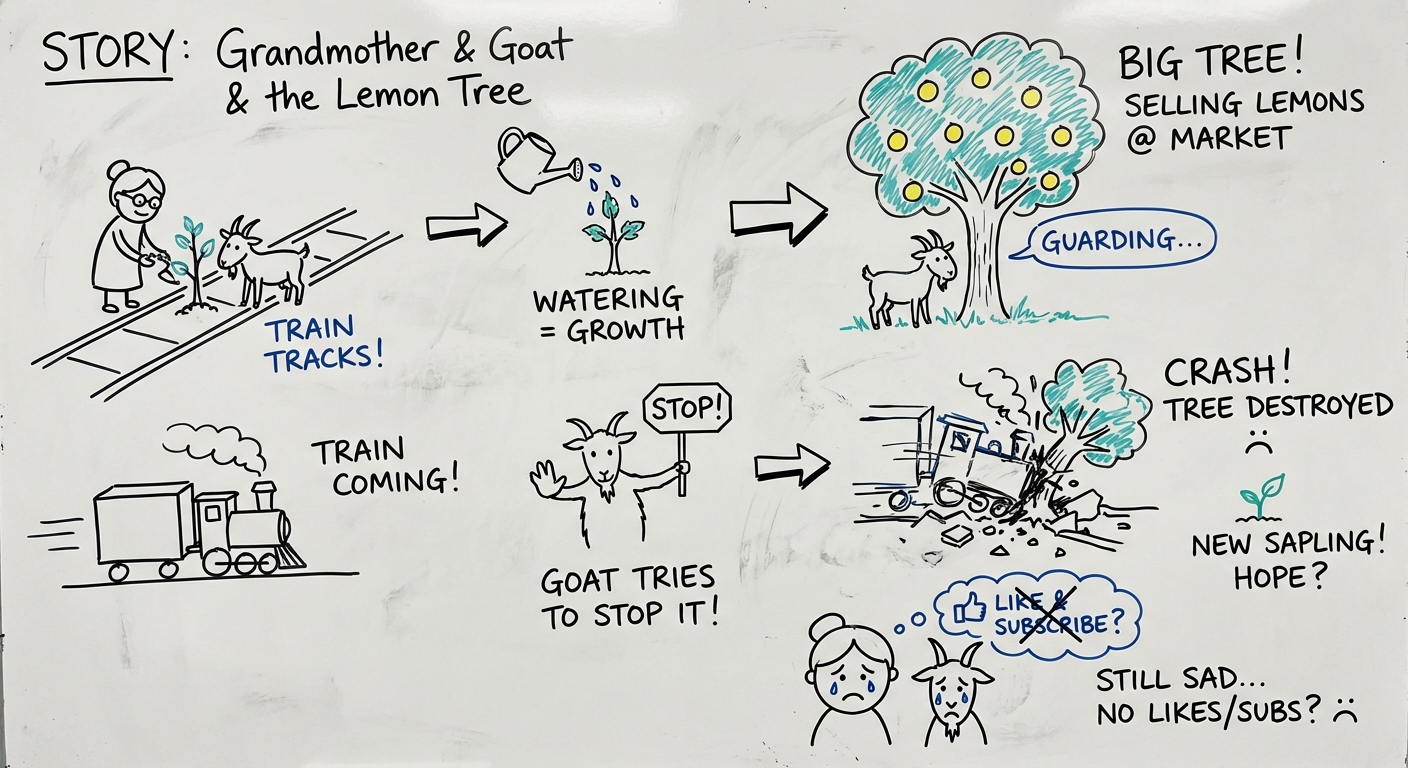 STORY: Grandmother & Goat
& the Lemon Tree
TRAIN
TRACKS!
WATERING
= GROWTH
BIG TREE!
SELLING LEMONS
@ MARKET
GUARDING...
TRAIN
COMING!
STOP!
GOAT TRIES
TO STOP IT!
CRASH!
TREE DESTROYED
NEW SAPLING!
HOPE?
LIKE &
SUBSCRIBE?
STILL SAD...
NO LIKES/SUBS?